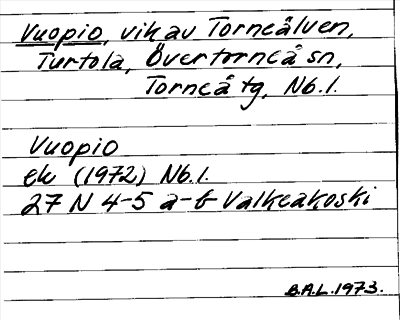 Vuopio, vik av Torneälven,
Turtola, Övertorneå sn,
Torneå tg, Nb.l.
Vuopio
ek (1972) Nb.l.
27 N 4-5 a-b Valkeakoski
B.A.L. 1973.